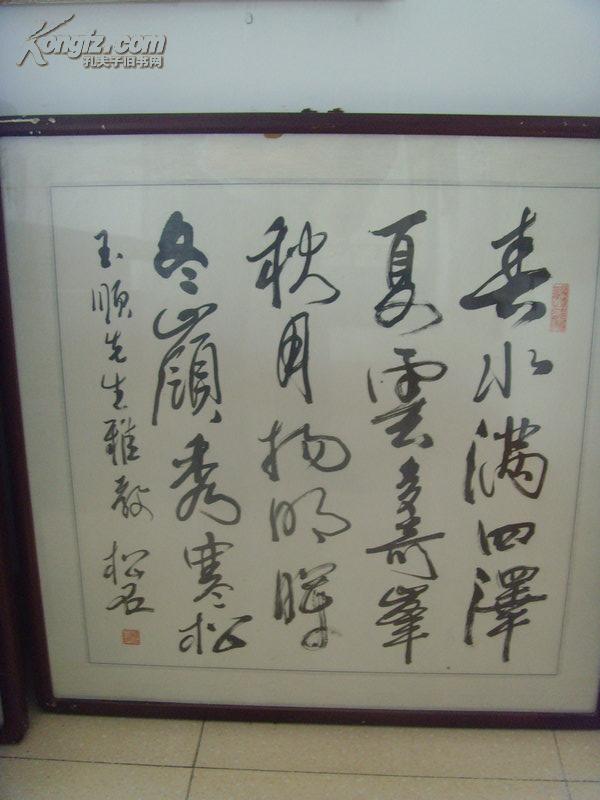 Kongfz.com
孔夫子旧书网
春水满四澤
夏雲多奇峯
秋月扬明暉
冬嶺秀寒松
玉順先生雅教 松石